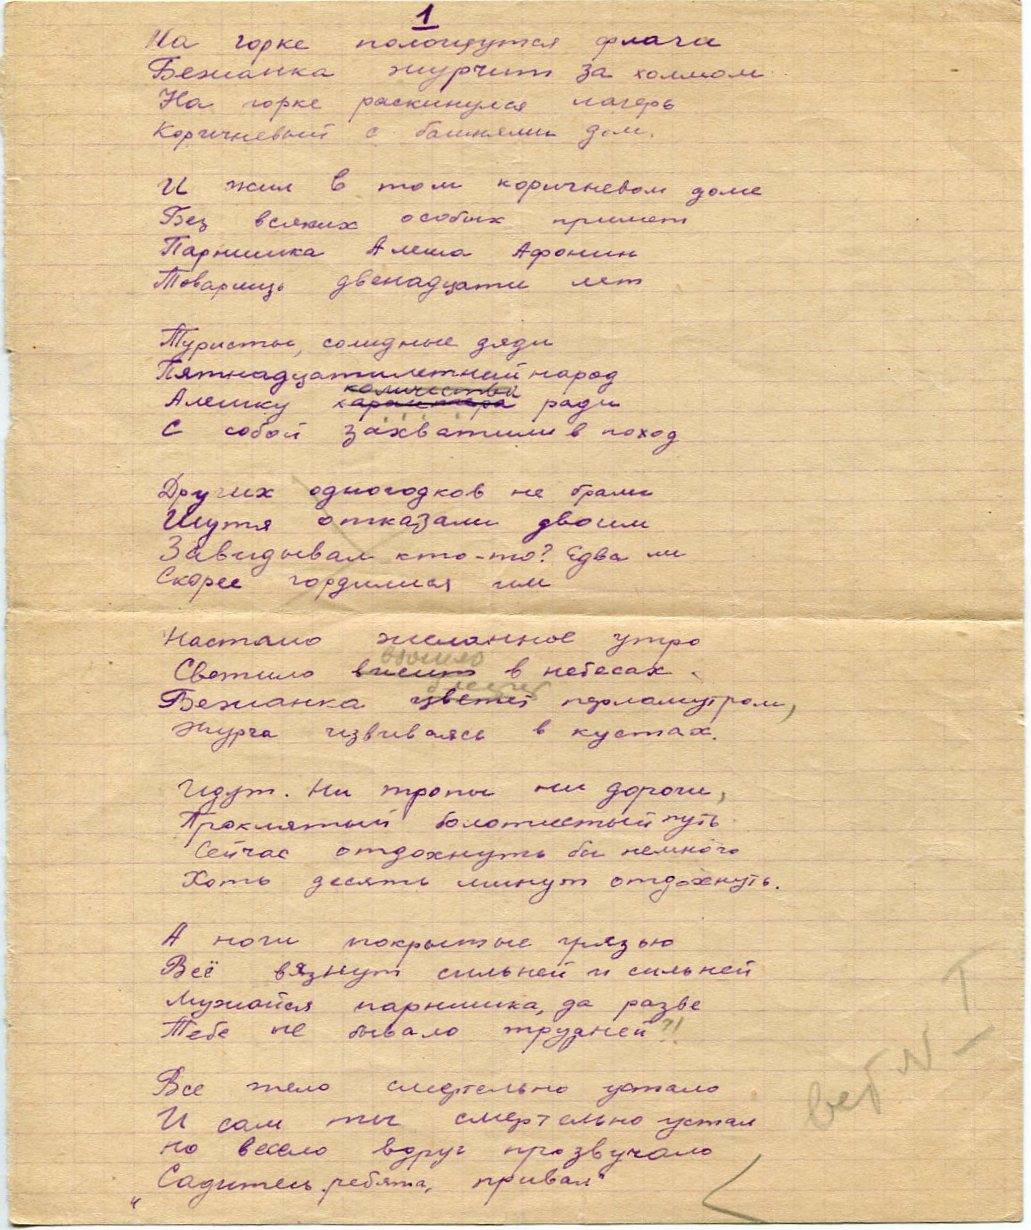 1
На горке полощутся флаги
Бежанка журчит за холмом
На горке раскинулся лагерь
Коричневый с башнями дом.
И жил в том коричневом доме
Без всяких особых примет
Парнишка Алеша Афонин
Товарищь двенадцати лет
Туристы, солидные дяди
Пятнадцатилетний народ
количества
Алешку характера ради
С собой захватили в поход
Других одногодков не брали
Шутя отказали двоим
Завидывал кто-то? Едва ли
Скорее гордилися им
Настало желанное утро
взошло
Светило висит в небесах.
блестит
Бежанка цветет перламутром,
Журча извиваясь в кустах.
Идут. Ни тропы ни дороги,
Проклятый болотистый путь.
Сейчас отдохнуть бы немного
Хоть десять минут отдохнуть.
А ноги покрытые грязью
Всё вязнут сильней и сильней
Мужайся парнишка, да разве
Тебе не бывало трудней?!
Все тело смертельно устало
И сам ты смертельно устал
Но весело вдруг прозвучало
"Садитесь ребята, привал"